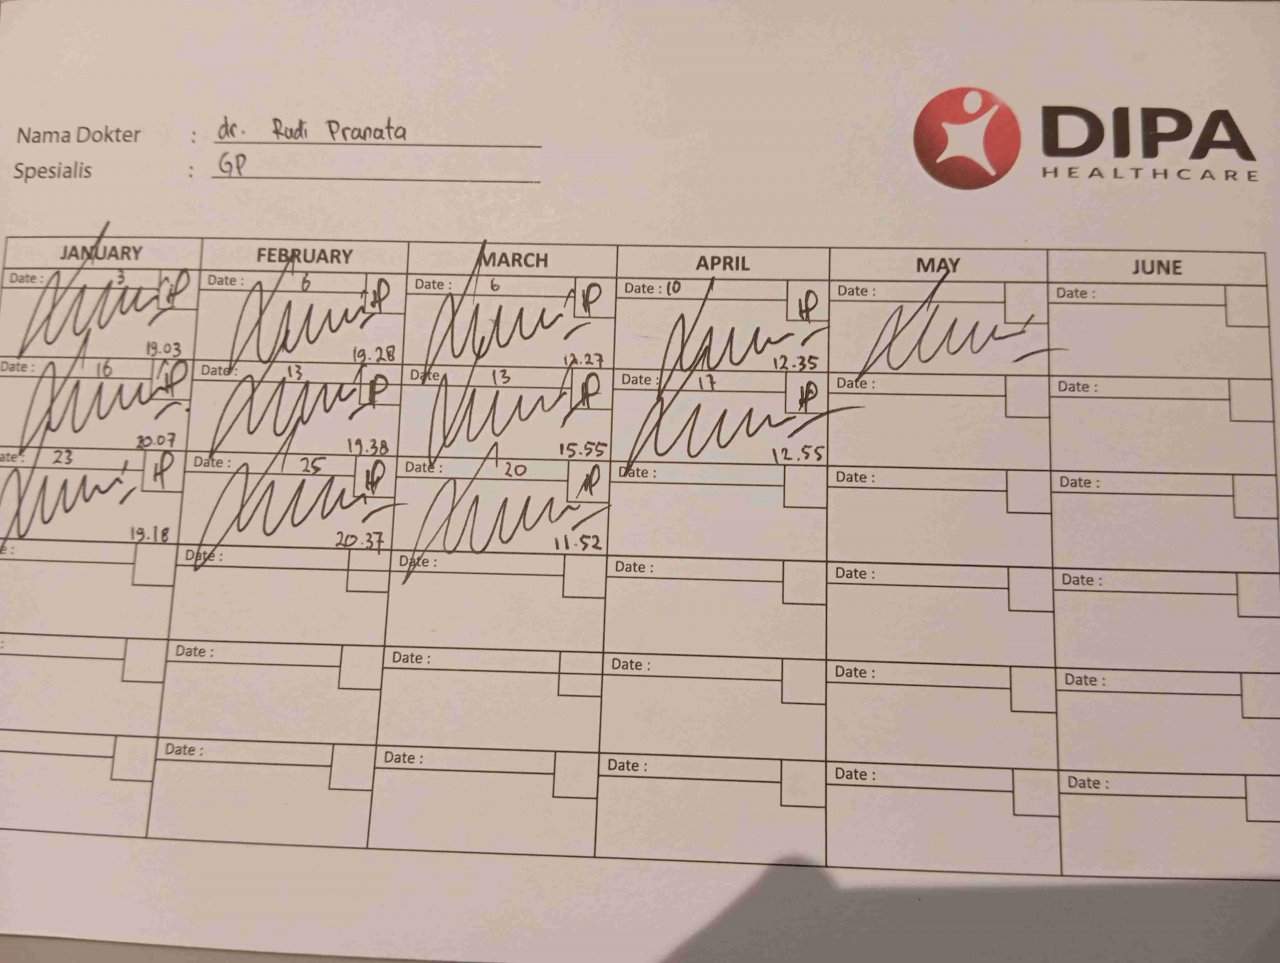 Nama Dokter : dr. Rudi Pranata
Spesialis : GP
DIPA
HEALTHCARE
JANUARY FEBRUARY MARCH APRIL MAY JUNE
Date : 3 Date : 6 Date : 6 Date : 10 Date : Date :
19.03 19.28 12.27 12.35
Date : 16 Date : 13 Date 13 Date : 17 Date : Date :
20.07 19.38 15.55 12.55
ate : 23 Date : 25 Date : 20 Date : Date : Date :
19.18 20.37 11.52
e : Date : Date : Date : Date : Date :
: Date : Date : Date : Date : Date :
Date : Date : Date : Date : Date :